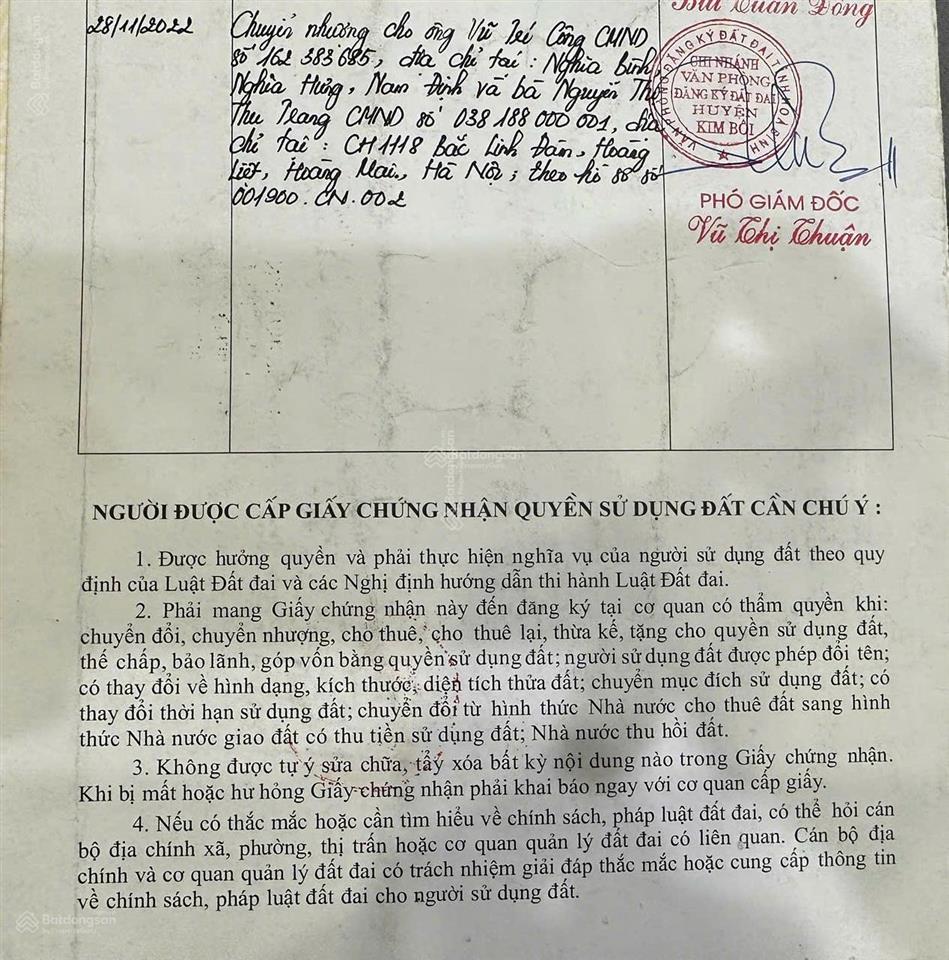 Bùi Xuân Đông
28/11/2022
Chuyển nhượng cho ông Vũ Trí Công CMND
số 162 383 685, địa chỉ tại: Nghĩa Bình
Nghĩa Hưng, Nam Định và bà Nguyễn Thị
Thu Trang CMND số 038 188 000 001, địa
chỉ tại: CH1118 Bắc Linh Đàm, Hoàng
Liệt, Hoàng Mai, Hà Nội; theo hồ sơ số
001900.CN.002
VĂN PHÒNG ĐĂNG KÝ ĐẤT ĐAI TỈNH HÒA BÌNH
CHI NHÁNH
VĂN PHÒNG
ĐĂNG KÝ ĐẤT ĐAI
HUYỆN
KIM BÔI
PHÓ GIÁM ĐỐC
Vũ Thị Thuận
NGƯỜI ĐƯỢC CẤP GIẤY CHỨNG NHẬN QUYỀN SỬ DỤNG ĐẤT CẦN CHÚ Ý :
1. Được hưởng quyền và phải thực hiện nghĩa vụ của người sử dụng đất theo quy
định của Luật Đất đai và các Nghị định hướng dẫn thi hành Luật Đất đai.
2. Phải mang Giấy chứng nhận này đến đăng ký tại cơ quan có thẩm quyền khi:
chuyển đổi, chuyển nhượng, cho thuê, cho thuê lại, thừa kế, tặng cho quyền sử dụng đất,
thế chấp, bảo lãnh, góp vốn bằng quyền sử dụng đất; người sử dụng đất được phép đổi tên;
có thay đổi về hình dạng, kích thước, diện tích thửa đất; chuyển mục đích sử dụng đất; có
thay đổi thời hạn sử dụng đất; chuyển đổi từ hình thức Nhà nước cho thuê đất sang hình
thức Nhà nước giao đất có thu tiền sử dụng đất; Nhà nước thu hồi đất.
3. Không được tự ý sửa chữa, tẩy xóa bất kỳ nội dung nào trong Giấy chứng nhận.
Khi bị mất hoặc hư hỏng Giấy chứng nhận phải khai báo ngay với cơ quan cấp giấy.
4. Nếu có thắc mắc hoặc cần tìm hiểu về chính sách, pháp luật đất đai, có thể hỏi cán
bộ địa chính xã, phường, thị trấn hoặc cơ quan quản lý đất đai có liên quan. Cán bộ địa
chính và cơ quan quản lý đất đai có trách nhiệm giải đáp thắc mắc hoặc cung cấp thông tin
về chính sách, pháp luật đất đai cho người sử dụng đất.
Batdongsan